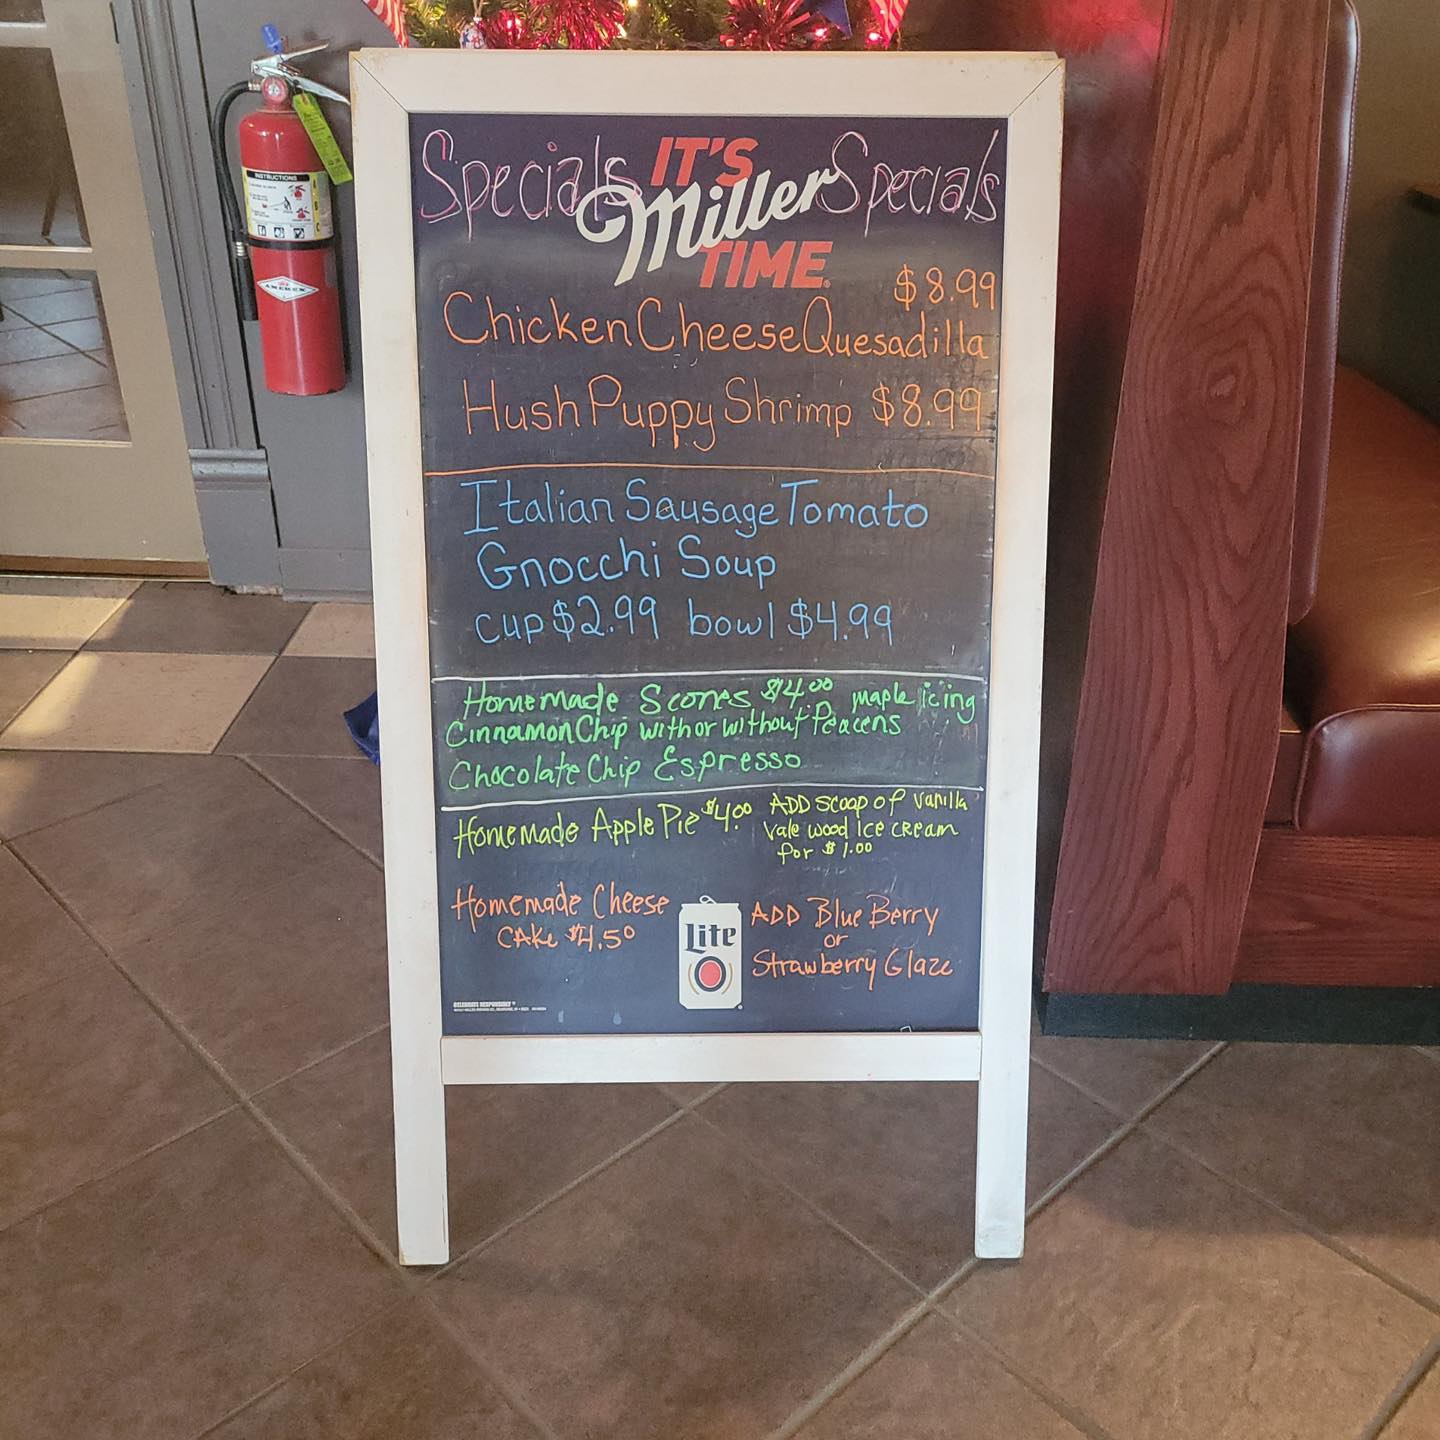 Specials IT'S Specials
Miller
TIME
$8.99
Chicken Cheese Quesadilla
Hush Puppy Shrimp $8.99
Italian Sausage Tomato
Gnocchi Soup
cup $2.99 bowl $4.99
Homemade Scones $4.00 maple icing
Cinnamon Chip with or without Peacens
Chocolate Chip Espresso
Homemade Apple Pie $4.00 ADD scoop of vanilla
Vale wood Ice cream
for $1.00
Homemade Cheese
CAKe $4.50
ADD Blue Berry
or
Strawberry Glaze
Lite
CELEBRATE RESPONSIBLY
INSTRUCTIONS
AMEREX